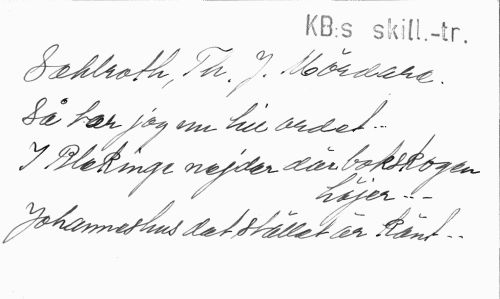 KB:s skill.-tr.
Sahlroth, Th. J. Mördare.
Så har jag nu hie ordet..
I Blekinge nejder där bokskogen
höjer...
Johanneshus det stället är känt...